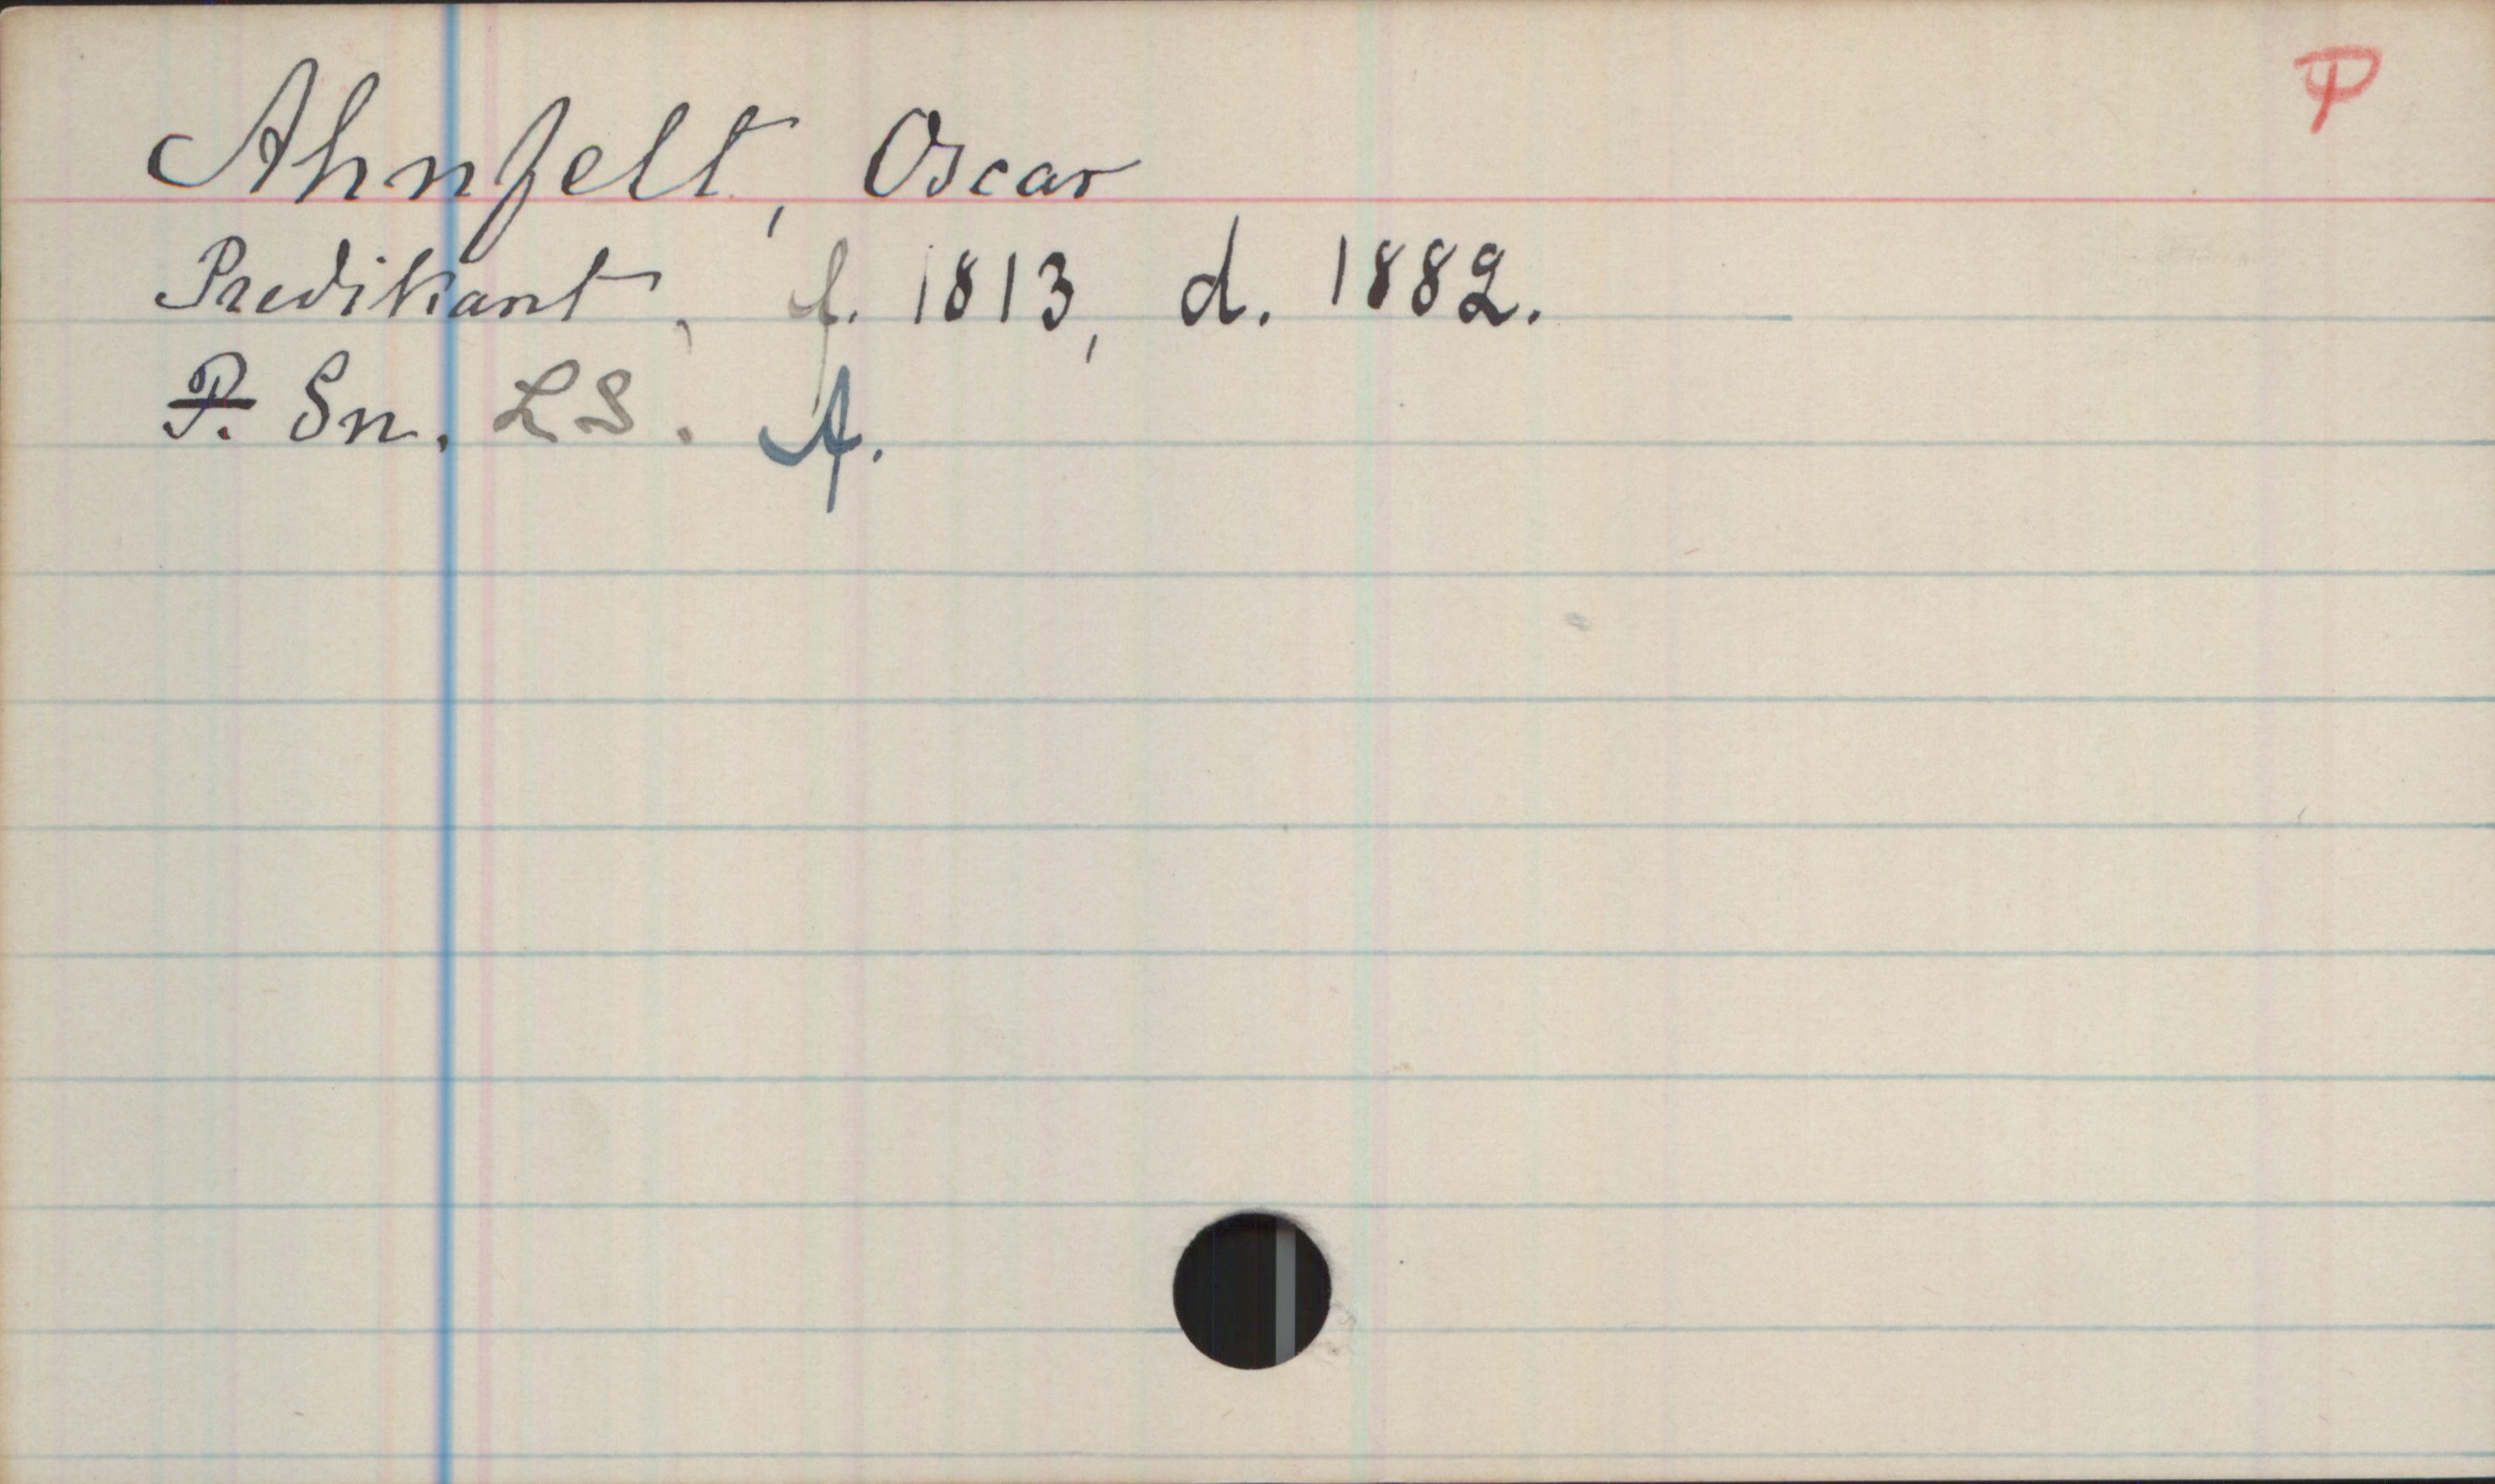 P
Ahnfelt, Oscar
Predikant, f. 1813, d. 1882.
P. Sn. LS. A.